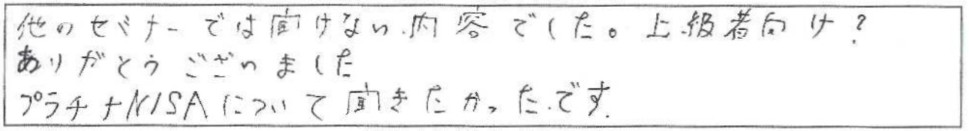 他のセミナーでは聞けない内容でした。上級者向け?
ありがとうございました
プラチナNISAについて聞きたかったです.